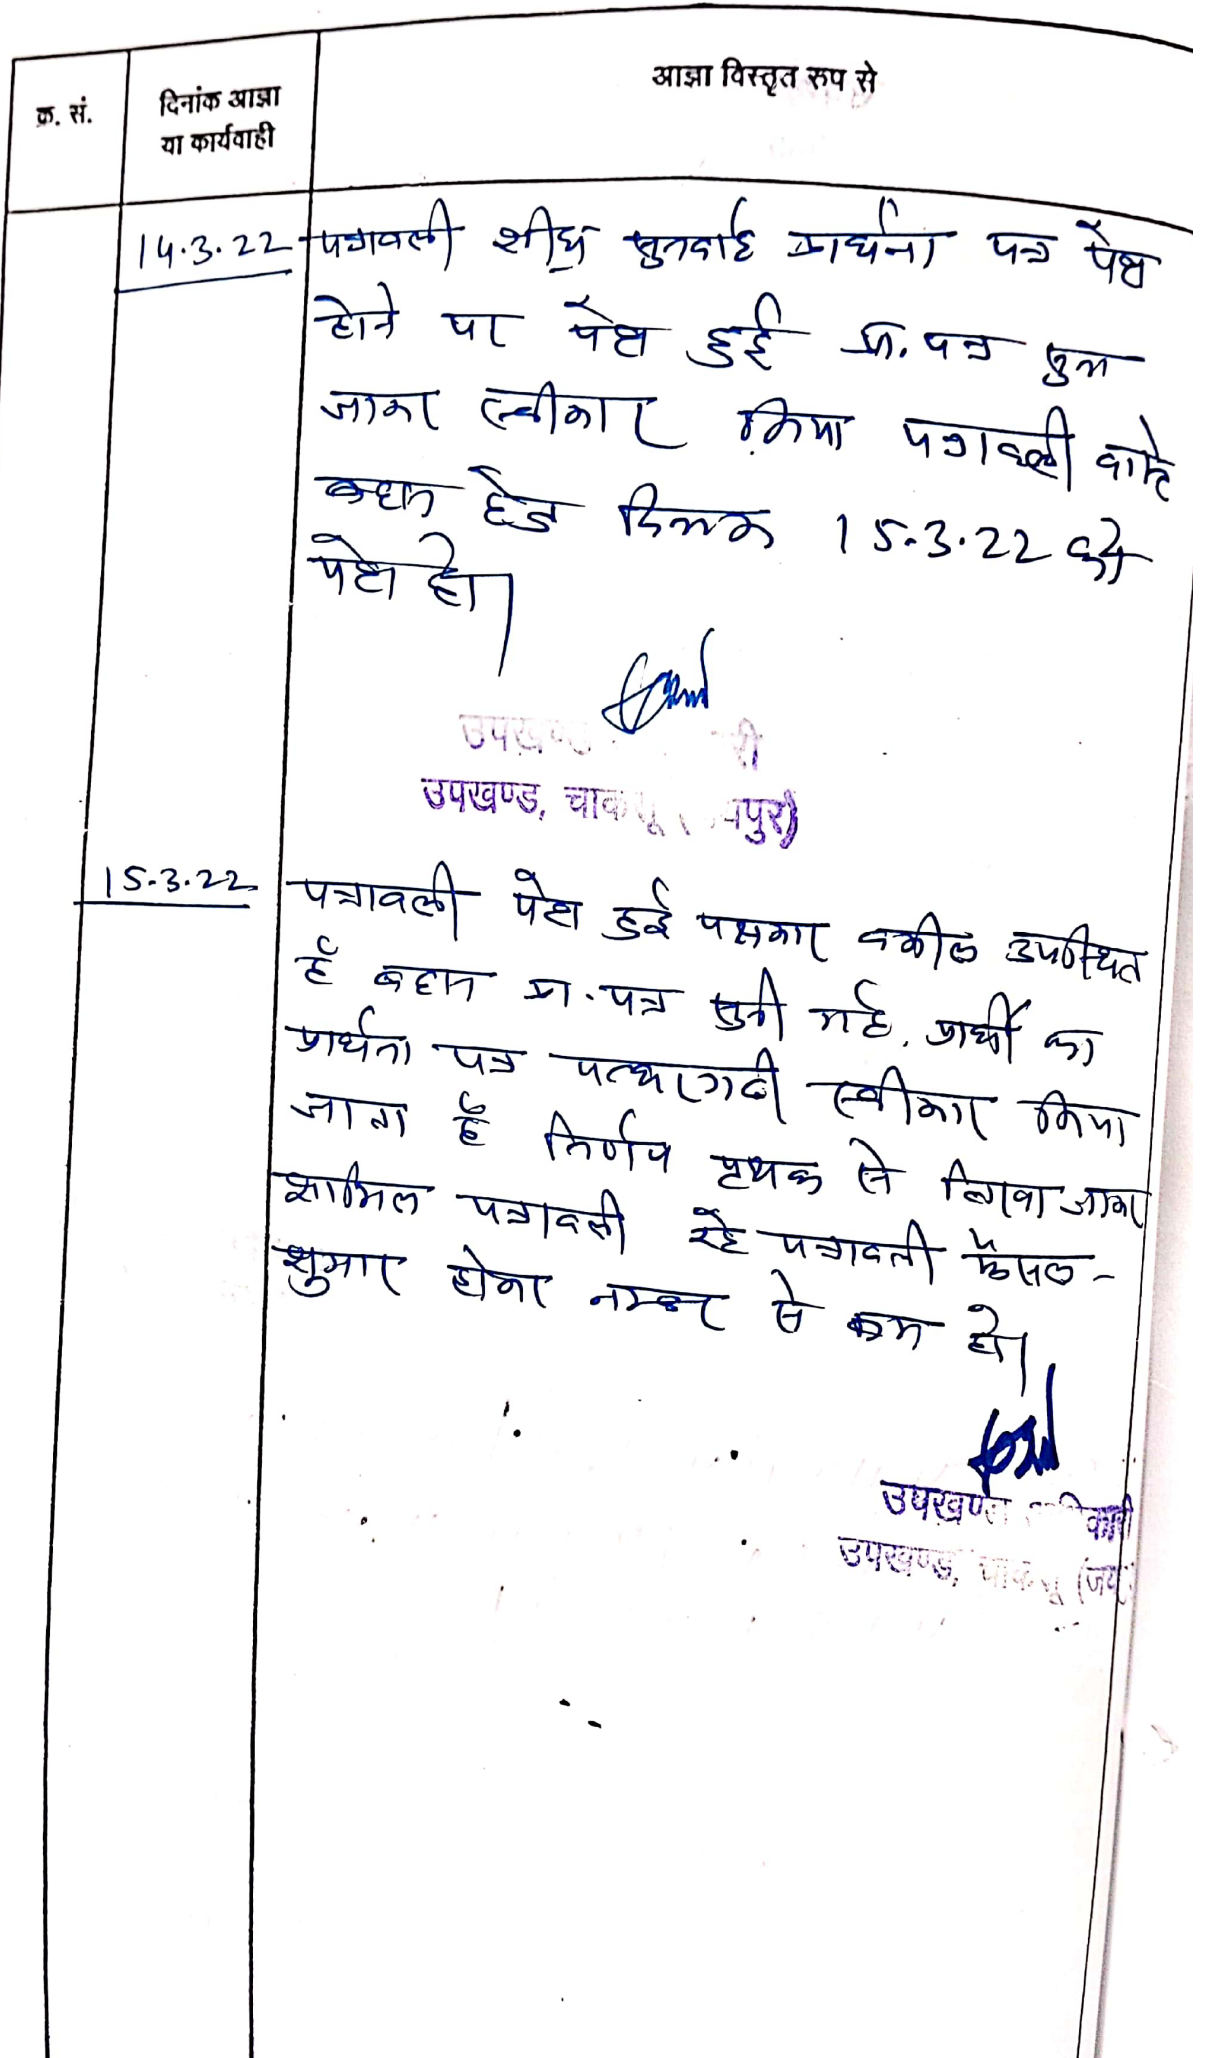 क्र. सं.
दिनांक आज्ञा
या कार्यवाही
आज्ञा विस्तृत रूप से
14.3.22
पत्रावली शीघ्र सुनवाई प्रार्थना पत्र पेश
होने पर पेश हुई प्रा. पत्र सुना
जाकर स्वीकार किया पत्रावली वास्ते
बहस हेतु दिनांक 15.3.22 को
पेश हो।
उपखण्ड
उपखण्ड, चाकसू (जयपुर)
15.3.22
पत्रावली पेश हुई पक्षकार वकील उपस्थित
है बहस प्रा. पत्र सुनी गई. प्रार्थी का
प्रार्थना पत्र पत्थरगढी स्वीकार किया
जाता है निर्णय पृथक से लिखा जाकर
शामिल पत्रावली रहे पत्रावली फैसल-
शुमार होकर नम्बर से कम हो।
उपखण्ड अधिकारी
उपखण्ड, चाकसू (जय